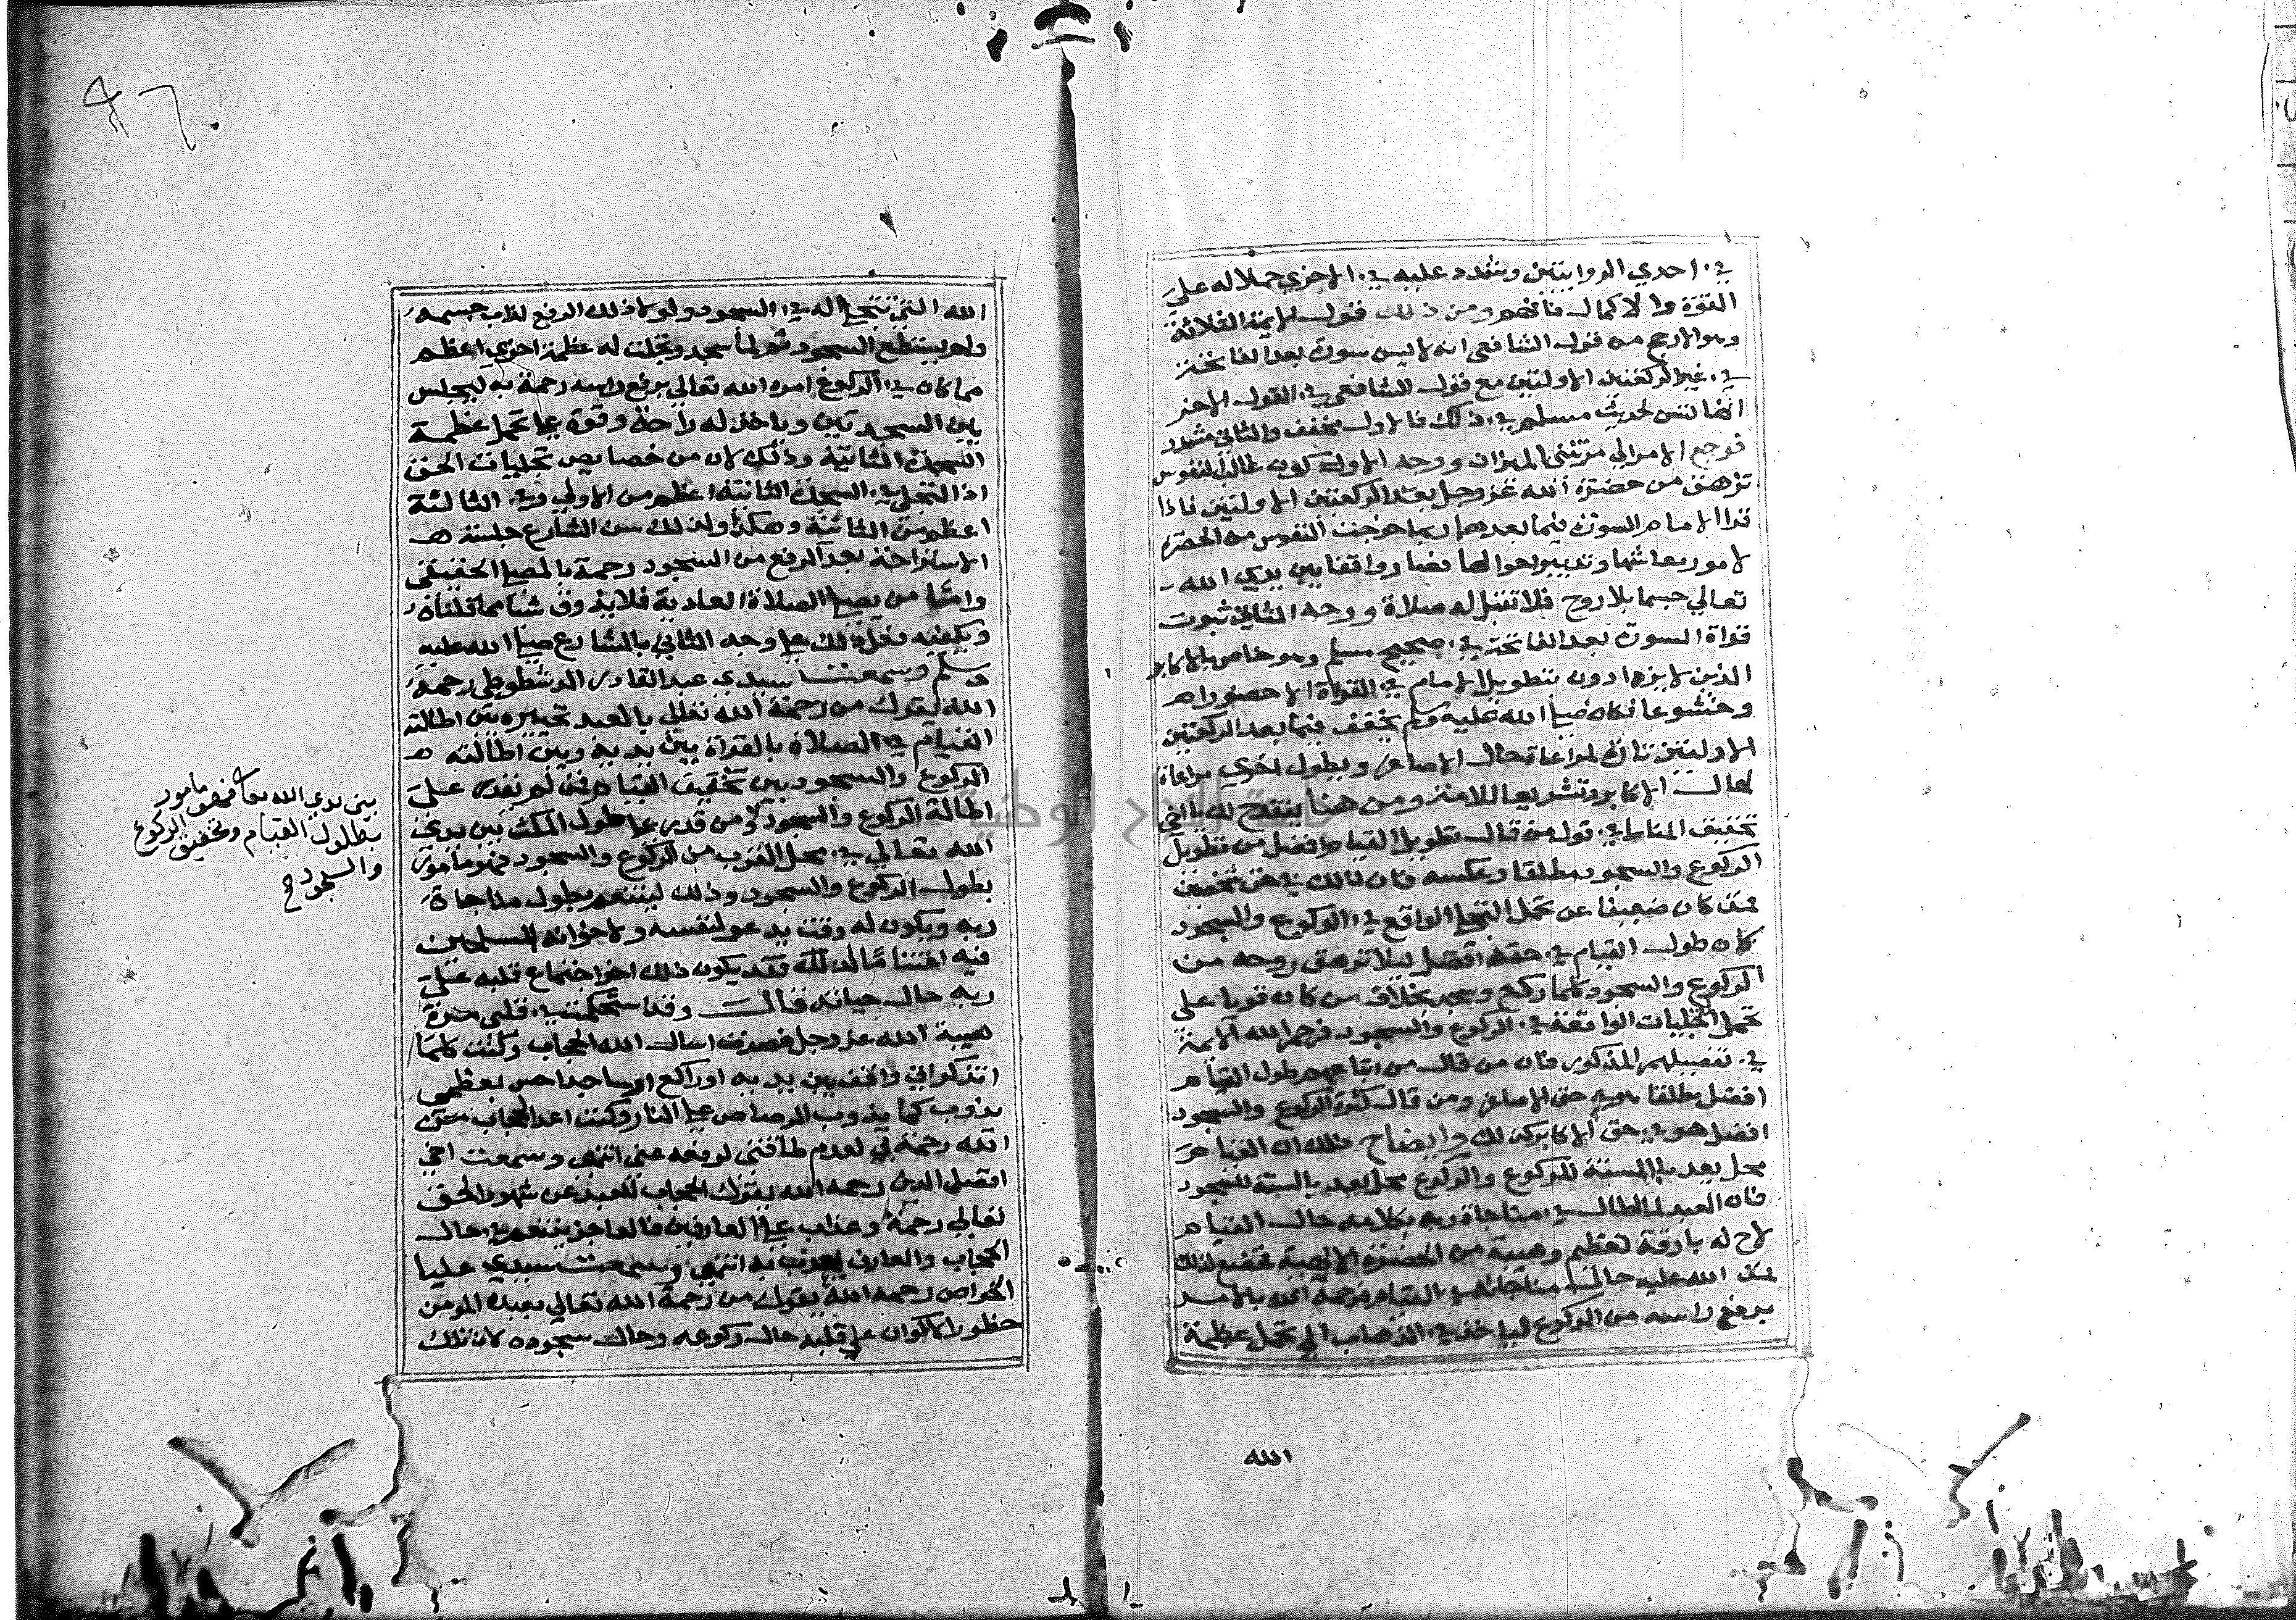 في احدي الروايتين وشدد عليه في الاخري حملا له علي
القوة والاكمال فافهم ومن ذلك قول الايمة الثلاثة
وهو الارجح من قول الشافعي انه لا يسن سورة بعد الفاتحة
في غير الركعتين الاولتين مع قول الشافعي في القول الاخر
انها تسن لحديث مسلم في ذلك فالاول مخفف والثاني مشدد
فرجع الامر الي مرتبتي الميزان ووجه الاول كون غالب النفوس
تزهق من حضرة الله عز وجل بعد الركعتين الاولتين فاذا
قرا الامام السورة فيما بعدهما ربما خرجت النفوس من الحضرة
لامور معاشها وتدبير احوالها فصار واقفا بين يدي الله
تعالي جسما بلا روح فلا تقبل له صلاة ووجه الثاني ثبوت
قراة السورة بعد الفاتحة في صحيح مسلم وهو خاص بالاكابر
الذين لا يزدادون بتطويل الامام في القراة الا حضورا
وخشوعا فكان صلي الله عليه وسلم يخفف فيما بعد الركعتين
الاولتين تارة لمراعاة حال الاصاغر ويطول اخري مراعاة
لحال الاكابر وتشريعا للامة ومن هنا ينقدح لك يا اخي
تخفيف المناط في قول من قال تطويل القيام افضل من تطويل
الركوع والسجود مطلقا وعكسه فان ذلك في حق شخصين
فمن كان ضعيفا عن تحمل التجلي الواقع في الركوع والسجود
كان طول القيام في حقه افضل ليلا تزهق روحه من
الركوع والسجود كلما ركع وسجد بخلاف من كان قويا علي
تحمل التجليات الواقعة في الركوع والسجود فرحم الله الايمة
في تفصيلهم المذكور فان من قال من اتباعهم طول القيام
افضل مطلقا هو في حق الاصاغر ومن قال كثرة الركوع والسجود
افضل هو في حق الاكابر كذلك وايضاح ذلك ان القيام
محل بعد بالنسبة للركوع والركوع محل بعد بالنسبة للسجود
فان العبد لما طال في مناجاة ربه بكلامه حال القيام
لاح له بارقة تعظيم وهيبة من الحضرة الالهية فخضع لذلك
فمن الله عليه حال مناجاته في القيام فرحمه الله بالامر
برفع راسه من الركوع لياخذ في الذهاب الي تحمل عظمة
الله
الله التي تتجلي له في السجود ولولا ذلك الرفع لذاب جسمه
ولم يستطع السجود ثم لما سجد وتجلت له عظمة اخري اعظم
مما كان في الركوع امره الله تعالي برفع راسه رحمة به ليجلس
بين السجدتين وياخذ له راحة وقوة علي تحمل عظمة
السجدة الثانية وذلك لان من خصايص تجليات الحق
ان التجلي في السجدة الثانية اعظم من الاولي وفي الثالثة
اعظم من الثانية وهكذا ولذلك سن الشارع جلسة
الاستراحة بعد الرفع من السجود رحمة بالمصلي الحقيقي
واما من يصلي الصلاة العادية فلا يذوق شيا مما قلناه
ويكفيه فعل ذلك علي وجه التاسي بالشارع صلي الله عليه
وسلم وسمعت سيدي عبد القادر الدشطوطي رحمه
الله يقول من رحمة الله تعالي بالعبد تخييره بين اطالة
القيام في الصلاة بالقراة بين يديه وبين اطالته
الركوع والسجود بين تخفيف القيام فمن لم يقدر علي
اطالة الركوع والسجود ومن قدر علي طول المكث بين يدي
الله تعالي في محل القرب من الركوع والسجود فهو مامور
بطول الركوع والسجود وذلك ليتنعم بطول مناجاة
ربه ويكون له وقت يدعو لنفسه ولاخوانه المسلمين
فيه اغتناما لذلك فقد يكون ذلك اخر اجتماع قلبه علي
ربه حال حياته قال وقد استحكمت في قلبي مرة
هيبة الله عز وجل فصرت اسال الله الحجاب وكنت كلما
اتذكر اني واقف بين يديه او راكع او ساجد احس بعظمي
يذوب كما يذوب الرصاص علي النار وكنت اعد الحجاب من
الله رحمة بي لعدم طاقتي لرفعه عني انتهي وسمعت اخي
افضل الدين رحمه الله يقول الحجاب للعبد عن شهود الحق
تعالي رحمة وعذاب علي العارفين فالعاجز يتنعم في حال
الحجاب والعارف يعذب به انتهي وسمعت سيدي عليا
الخواص رحمه الله يقول من رحمة الله تعالي بعبده المومن
خطور الاكوان علي قلبه حال ركوعه وحال سجوده لان تلك
بين يدي الله تعا فهو مامور
بطول القيام وتخفيف الركوع
والسجود